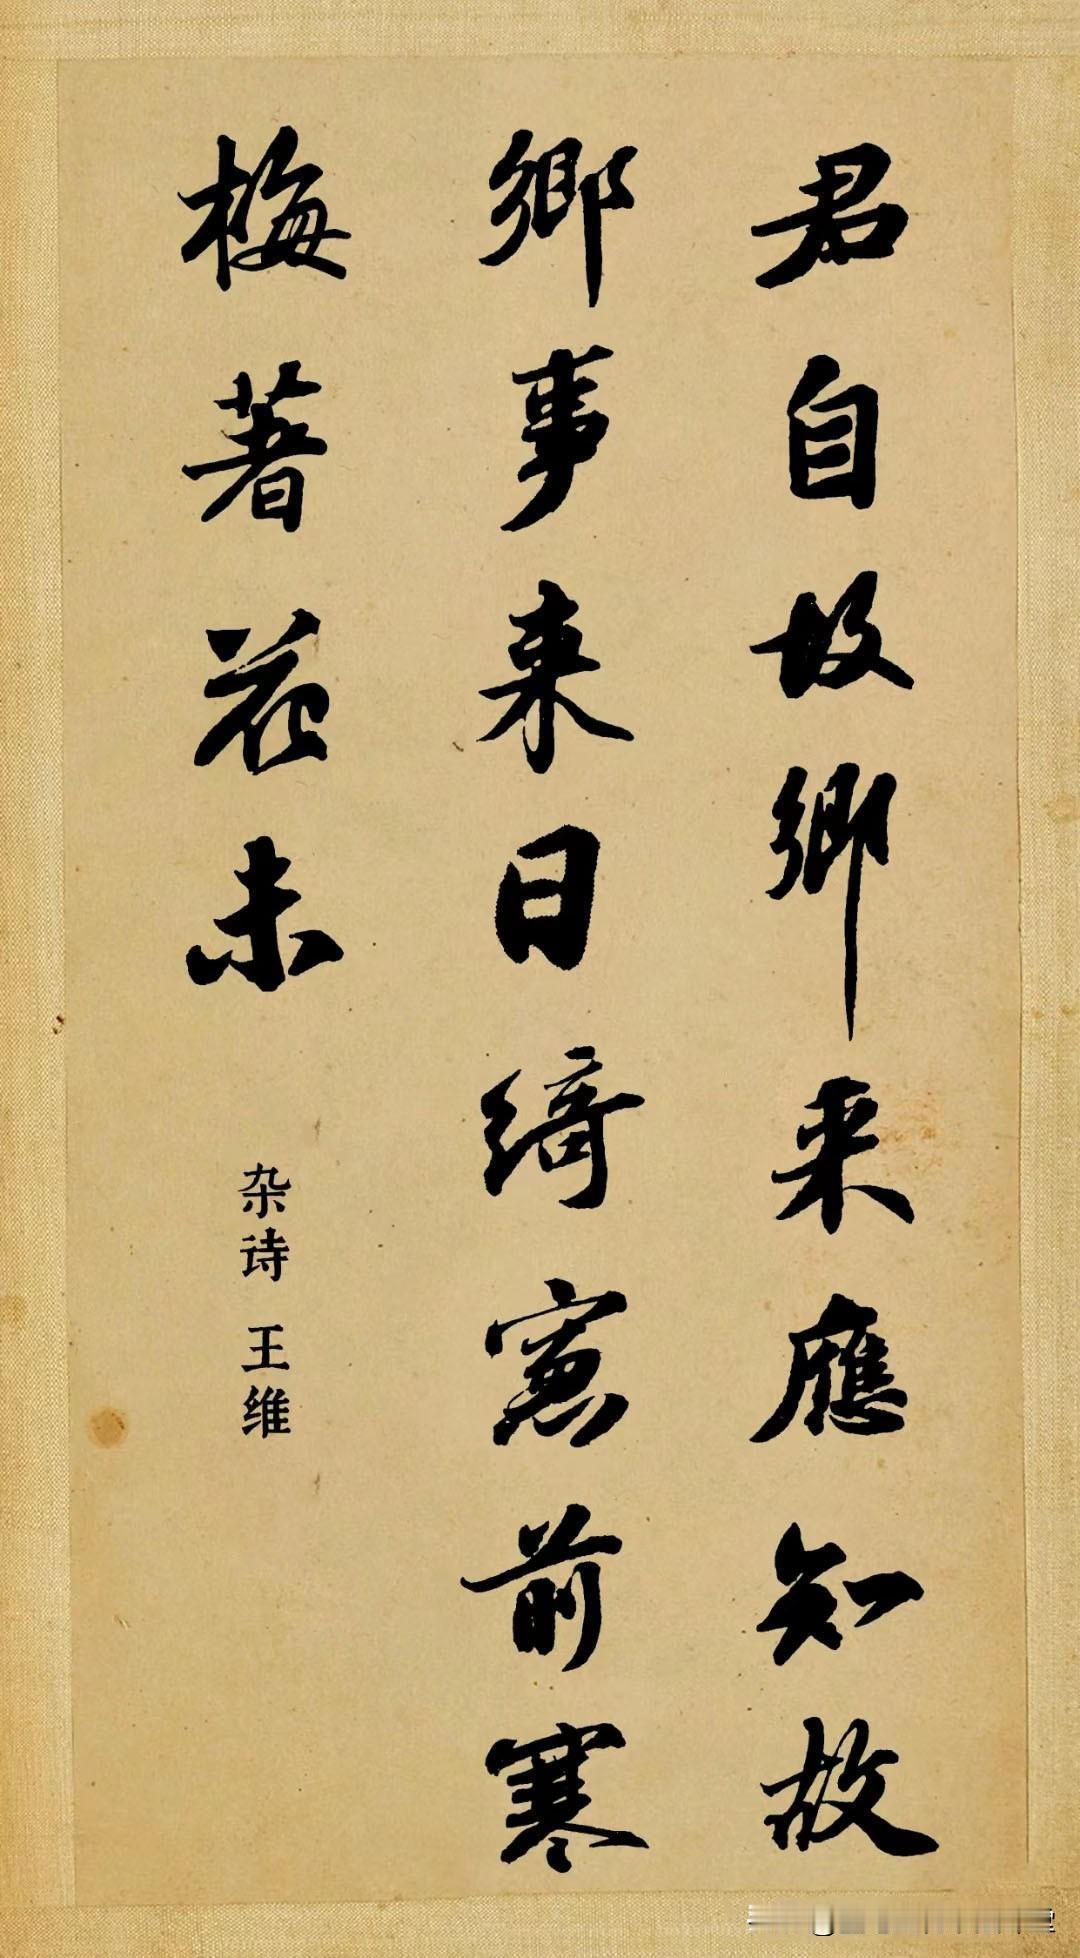 君自故鄉来應知故
鄉事来日綺窓前寒
梅著花未
杂诗 王维